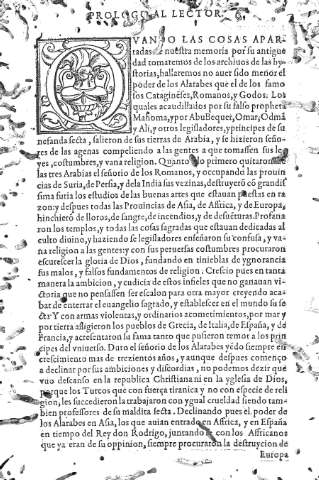 PROLOGO AL LECTOR.
QVANDO LAS COSAS APAR-
tadas de nuestra memoria por su antigue
dad tomaremos de los archiuos de las hy
storias, hallaremos no auer sido menor el
poder de los Alarabes que el de los famo
sos Catagineses, Romanos, y Godos: Los
quales acaudillados por su falso propheta
Mahoma, y por AbuBequer, Omar, Odmã
y Ali, y otros legisladores, y principes de su
nefanda secta, salieron de sus tierras de Arabia, y se hizieron seño-
res de las agenas compeliendo a las gentes a que tomassen sus le-
yes, costumbres, y vana religion. Quanto lo primero quitaron
las tres Arabias el señorio de los Romanos, y occupando las prouin
cias de Suria, de Persia, y dela India sus vezinas, destruyerõ cõ grandif
sima furia los estudios de las buenas artes que estauan puestas en ra
zon: y despues todas las Prouincias de Asia, de Affrica, y de Europa,
hinchierõ de lloros, de sangre, de incendios, y de desuẽturas. Profana
ron los templos, y todas las cosas sagradas que estauan dedicadas al
culto diuino, y haziendo se legisladores enseñaron su confusa, y va-
na religion a las gentes: y con sus peruersas costumbres procuraron
escurescer la gloria de Dios, fundando en tinieblas de ygnorancia
sus malos, y falsos fundamentos de religion. Crescio pues en tanta
manera la ambicion, y cudicia de estos infieles que no ganauan vi-
ctoria que no pensassen ser escalon para otra mayor creyendo acaa-
bar de enterrar el euangelio sagrado, y establescer en el mundo su se
cta. Y con armas violentas, y ordinarios acometimientos, por mar y
por tierra affligieron los pueblos de Grecia, de Italia, de España, y de
Francia, y acrescentaron su fama tanto que pusieron temor a los prin
cipes del vniuerso. Duro el señorio de los Alarabes yẽdo siempre en
crescimiento mas de trezientos años, y aunque despues començo
a declinar por sus ambiciones y discordias, no podemos dezir que
vuo descanso en la republica Christiana ni en la yglesia de Dios,
porque los Turcos que con fuerça tiranica y no con especie de reli
gion, les succedieron la trabajaron con ygual crueldad siendo tam-
bien professores de su maldita secta. Declinando pues el poder de
los Alarabes en Asia, los que auian entrado en Affrica, y en España
en tiempo del Rey don Rodrigo, juntando se con los Affricanos
que ya eran de su oppinion, siempre procuraron la destruycion de
Europa